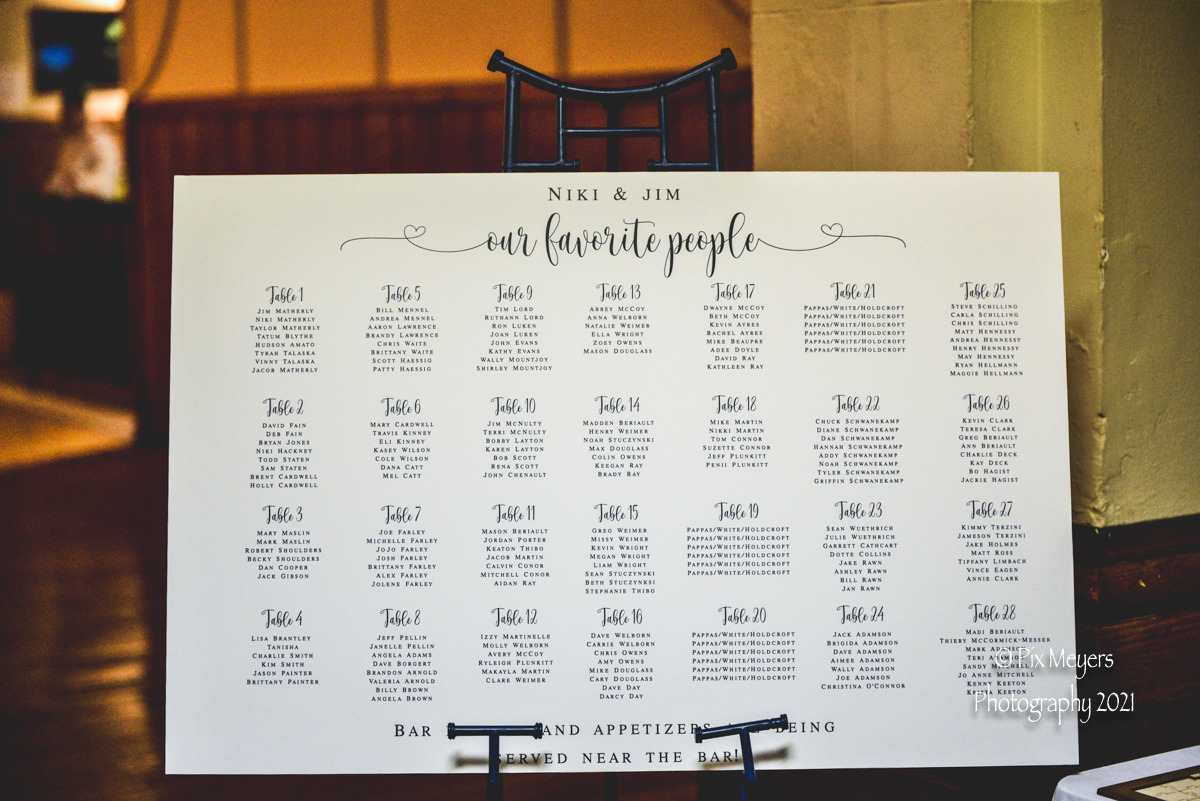 NIKI & JIM
our favorite people
Table 1
JIM MATHERLY
NIKI MATHERLY
TAYLOR MATHERLY
TATUM BLYTHE
HUDSON AMATO
TYRAH TALASKA
VINNY TALASKA
JACOB MATHERLY
Table 5
BILL MENNEL
ANDREA MENNEL
AARON LAWRENCE
BRANDY LAWRENCE
CHRIS WAITE
BRITTANY WAITE
SCOTT HAESSIG
PATTY HAESSIG
Table 9
TIM LORD
RUTHANN LORD
RON LUKEN
JOAN LUKEN
JOHN EVANS
KATHY EVANS
WALLY MOUNTJOY
SHIRLEY MOUNTJOY
Table 13
ABBEY MCCOY
ANNA WELBORN
NATALIE WEIMER
ELLA WRIGHT
ZOEY OWENS
MASON DOUGLASS
Table 17
DWAYNE MCCOY
BETH MCCOY
KEVIN AYRES
RACHEL AYRES
MIKE BEAUPRE
ADEE DOYLE
DAVID RAY
KATHLEEN RAY
Table 21
PAPPAS/WHITE/HOLDCROFT
PAPPAS/WHITE/HOLDCROFT
PAPPAS/WHITE/HOLDCROFT
PAPPAS/WHITE/HOLDCROFT
PAPPAS/WHITE/HOLDCROFT
PAPPAS/WHITE/HOLDCROFT
Table 25
STEVE SCHILLING
CARLA SCHILLING
CHRIS SCHILLING
MATT HENNESSY
ANDREA HENNESSY
HENRY HENNESSY
MAY HENNESSY
RYAN HELLMANN
MAGGIE HELLMANN
Table 2
DAVID FAIN
DEB FAIN
BRYAN JONES
NIKI HACKNEY
TODD STATEN
SAM STATEN
BRENT CARDWELL
HOLLY CARDWELL
Table 6
MARY CARDWELL
TRAVIS KINNEY
ELI KINNEY
KASEY WILSON
COLE WILSON
DANA CATT
MEL CATT
Table 10
JIM MCNULTY
TERRI MCNULTY
BOBBY LAYTON
KAREN LAYTON
BOB SCOTT
RENA SCOTT
JOHN CHENAULT
Table 14
MADDEN BERIAULT
HENRY WEIMER
NOAH STUCZYNSKI
MAX DOUGLASS
COLIN OWENS
KEEGAN RAY
BRADY RAY
Table 18
MIKE MARTIN
NIKKI MARTIN
TOM CONNOR
SUZETTE CONNOR
JEFF PLUNKITT
PENII PLUNKITT
Table 22
CHUCK SCHWANEKAMP
DIANE SCHWANEKAMP
DAN SCHWANEKAMP
HANNAH SCHWANEKAMP
ADDY SCHWANEKAMP
NOAH SCHWANEKAMP
TYLER SCHWANEKAMP
GRIFFIN SCHWANEKAMP
Table 26
KEVIN CLARK
TERESA CLARK
GREG BERIAULT
ANN BERIAULT
CHARLIE DECK
KAY DECK
BO HAGIST
JACKIE HAGIST
Table 3
MARY MASLIN
MARK MASLIN
ROBERT SHOULDERS
BECKY SHOULDERS
DAN COOPER
JACK GIBSON
Table 7
JOE FARLEY
MICHELLE FARLEY
JOJO FARLEY
JOSH FARLEY
BRITTANY FARLEY
ALEX FARLEY
JOLENE FARLEY
Table 11
MASON BERIAULT
JORDAN PORTER
KEATON THIBO
JACOB MARTIN
CALVIN CONOR
MITCHELL CONOR
AIDAN RAY
Table 15
GREG WEIMER
MISSY WEIMER
KEVIN WRIGHT
MEGAN WRIGHT
LIAM WRIGHT
SEAN STUCZYNSKI
BETH STUCZYNKSI
STEPHANIE THIBO
Table 19
PAPPAS/WHITE/HOLDCROFT
PAPPAS/WHITE/HOLDCROFT
PAPPAS/WHITE/HOLDCROFT
PAPPAS/WHITE/HOLDCROFT
PAPPAS/WHITE/HOLDCROFT
PAPPAS/WHITE/HOLDCROFT
Table 23
SEAN WUETHRICH
JULIE WUETHRICH
GARRETT CATHCART
DOTTE COLLINS
JAKE RAWN
ASHLEY RAWN
BILL RAWN
JAN RAWN
Table 27
KIMMY TERZINI
JAMESON TERZINI
JAKE HOLMES
MATT ROSS
TIFFANY LIMBACH
VINCE EAGEN
ANNIE CLARK
Table 4
LISA BRANTLEY
TANISHA
CHARLIE SMITH
KIM SMITH
JASON PAINTER
BRITTANY PAINTER
Table 8
JEFF PELLIN
JANELLE PELLIN
ANGELA ADAMS
DAVE BORGERT
BRANDON ARNOLD
VALERIA ARNOLD
BILLY BROWN
ANGELA BROWN
Table 12
IZZY MARTINELLE
MOLLY WELBORN
AVERY MCCOY
RYLEIGH PLUNKITT
MAKAYLA MARTIN
CLARE WEIMER
Table 16
DAVE WELBORN
CARRIE WELBORN
CHRIS OWENS
AMY OWENS
MIKE DOUGLASS
CARY DOUGLASS
DAVE DAY
DARCY DAY
Table 20
PAPPAS/WHITE/HOLDCROFT
PAPPAS/WHITE/HOLDCROFT
PAPPAS/WHITE/HOLDCROFT
PAPPAS/WHITE/HOLDCROFT
PAPPAS/WHITE/HOLDCROFT
PAPPAS/WHITE/HOLDCROFT
Table 24
JACK ADAMSON
BRIGIDA ADAMSON
DAVE ADAMSON
AIMEE ADAMSON
WALLY ADAMSON
JOE ADAMSON
CHRISTINA O'CONNOR
Table 28
MADI BERIAULT
THIERY MCCORMICK-MESSER
MARK
TERI
SANDY MITCHELL
JO ANNE MITCHELL
KENNY KEETON
KEETON
BAR AND APPETIZERS BEING
SERVED NEAR THE BAR!
© Pix Meyers
Photography 2021